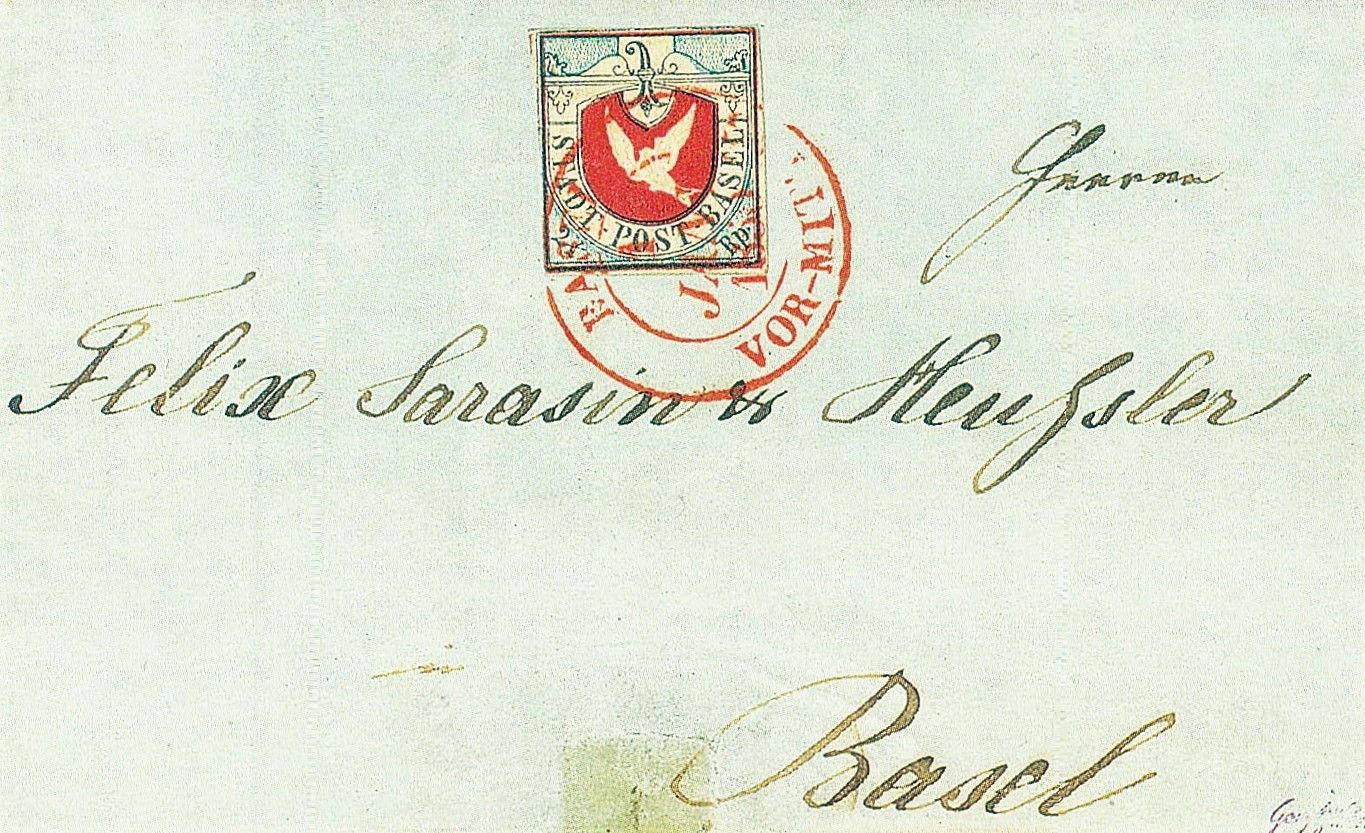 STADT-POST-BASEL
2½ Rp.
VOR-MIT
Herrn
Felix Sarasin & Heußler
in
Basel